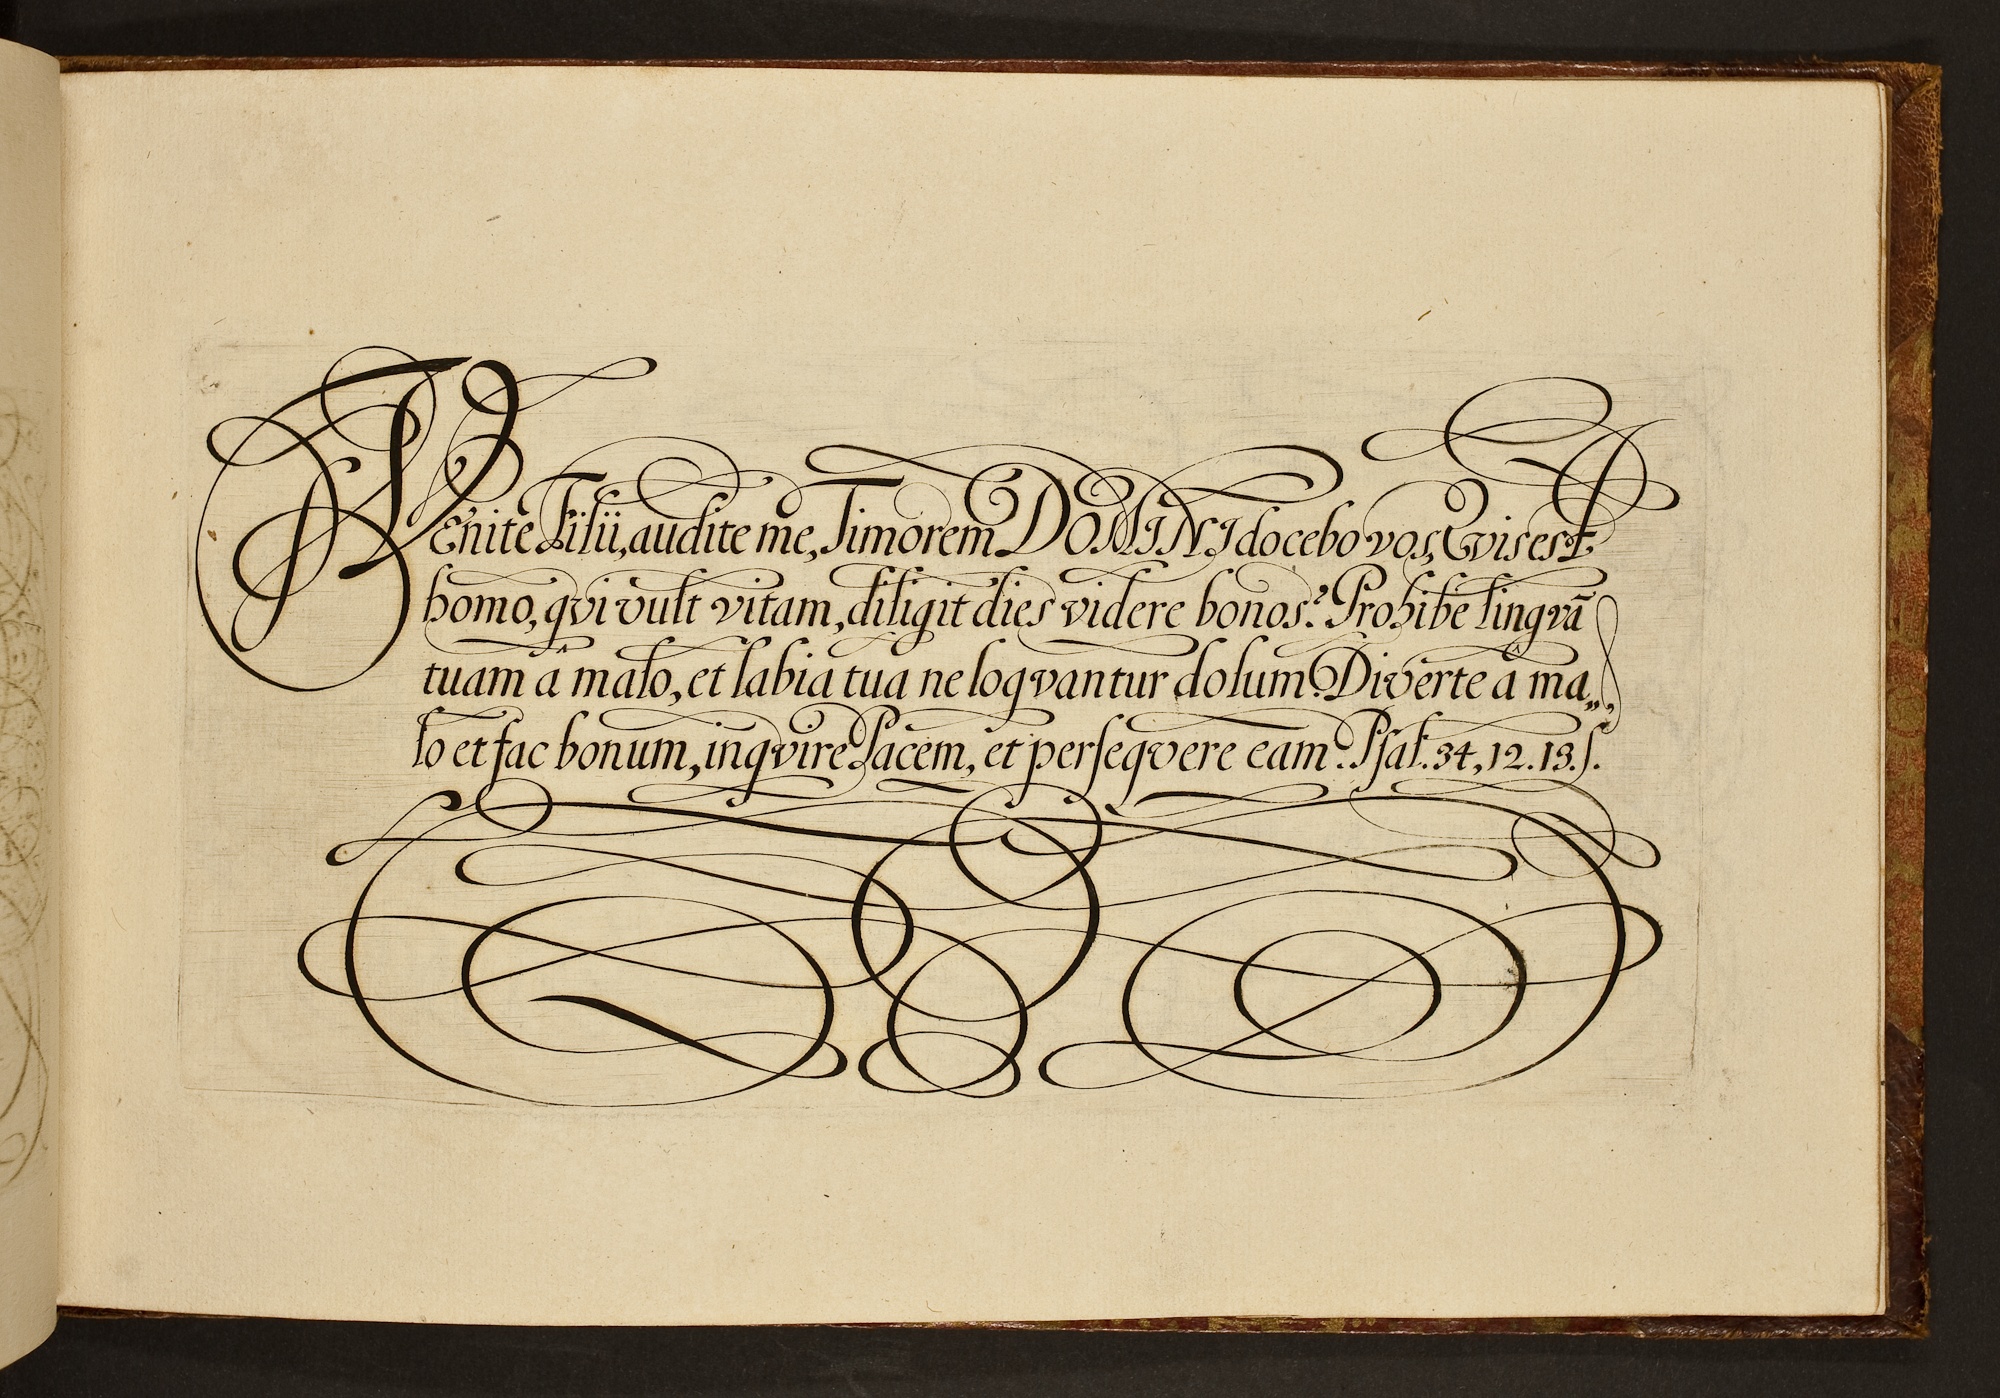 Venite Filii, audite me, Timorem DOMINI docebo vos, Qvis est
homo, qvi vult vitam, diligit dies videre bonos? Prohibe lingvā
tuam â malo, et labia tua ne loqvantur dolum. Diverte â ma„
lo et fac bonum, inqvire Pacem, et perseqvere eam. Psal. 34, 12. 13. s.